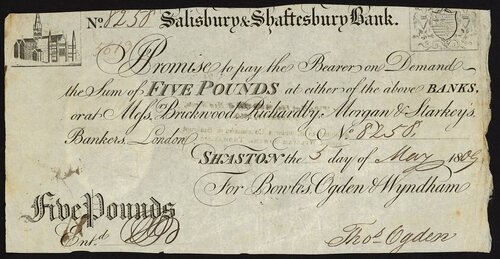 No. 8258 Salisbury & Shaftesbury Bank.
I Promise to pay the Bearer on Demand
the Sum of FIVE POUNDS at either of the above BANKS,
or at Mess. Brickwood, Rickardby, Morgan & Starkey's
Bankers, London. No. 8258.
SHASTON the 5 day of May 1809
For Bowles, Ogden & Wyndham
Five Pounds
Ent.d
Thos. Ogden